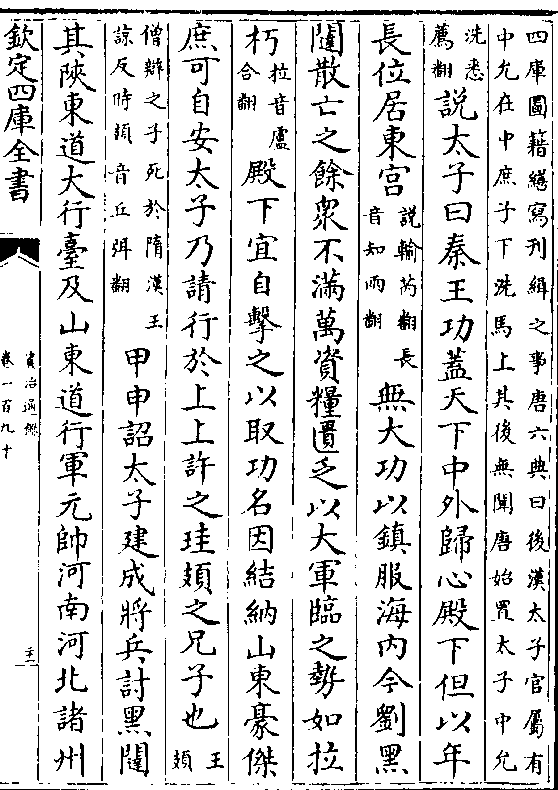 四庫圖籍繕寫刋緝之事唐六典曰後漢太子官屬有
中允在中庶子下洗馬上其後無聞唐始置太子中允
洗悉
薦翻
說太子曰秦王功蓋天下中外歸心殿下但以年
長位居東宫
說輸芮翻長
音知兩翻
無大功以鎮服海内今劉黑
闥散亡之餘衆不滿萬資糧匱乏以大軍臨之勢如拉
朽
拉音盧
合翻
殿下宜自擊之以取功名因結納山東豪傑
庶可自安太子乃請行於上上許之珪頍之兄子也
王
頍
僧辯之子死於隋漢王
諒反時頍音丘弭翻
甲申詔太子建成將兵討黑闥
其陜東道大行臺及山東道行軍元帥河南河北諸州
欽定四庫全書
資治通鑑
卷一百九十